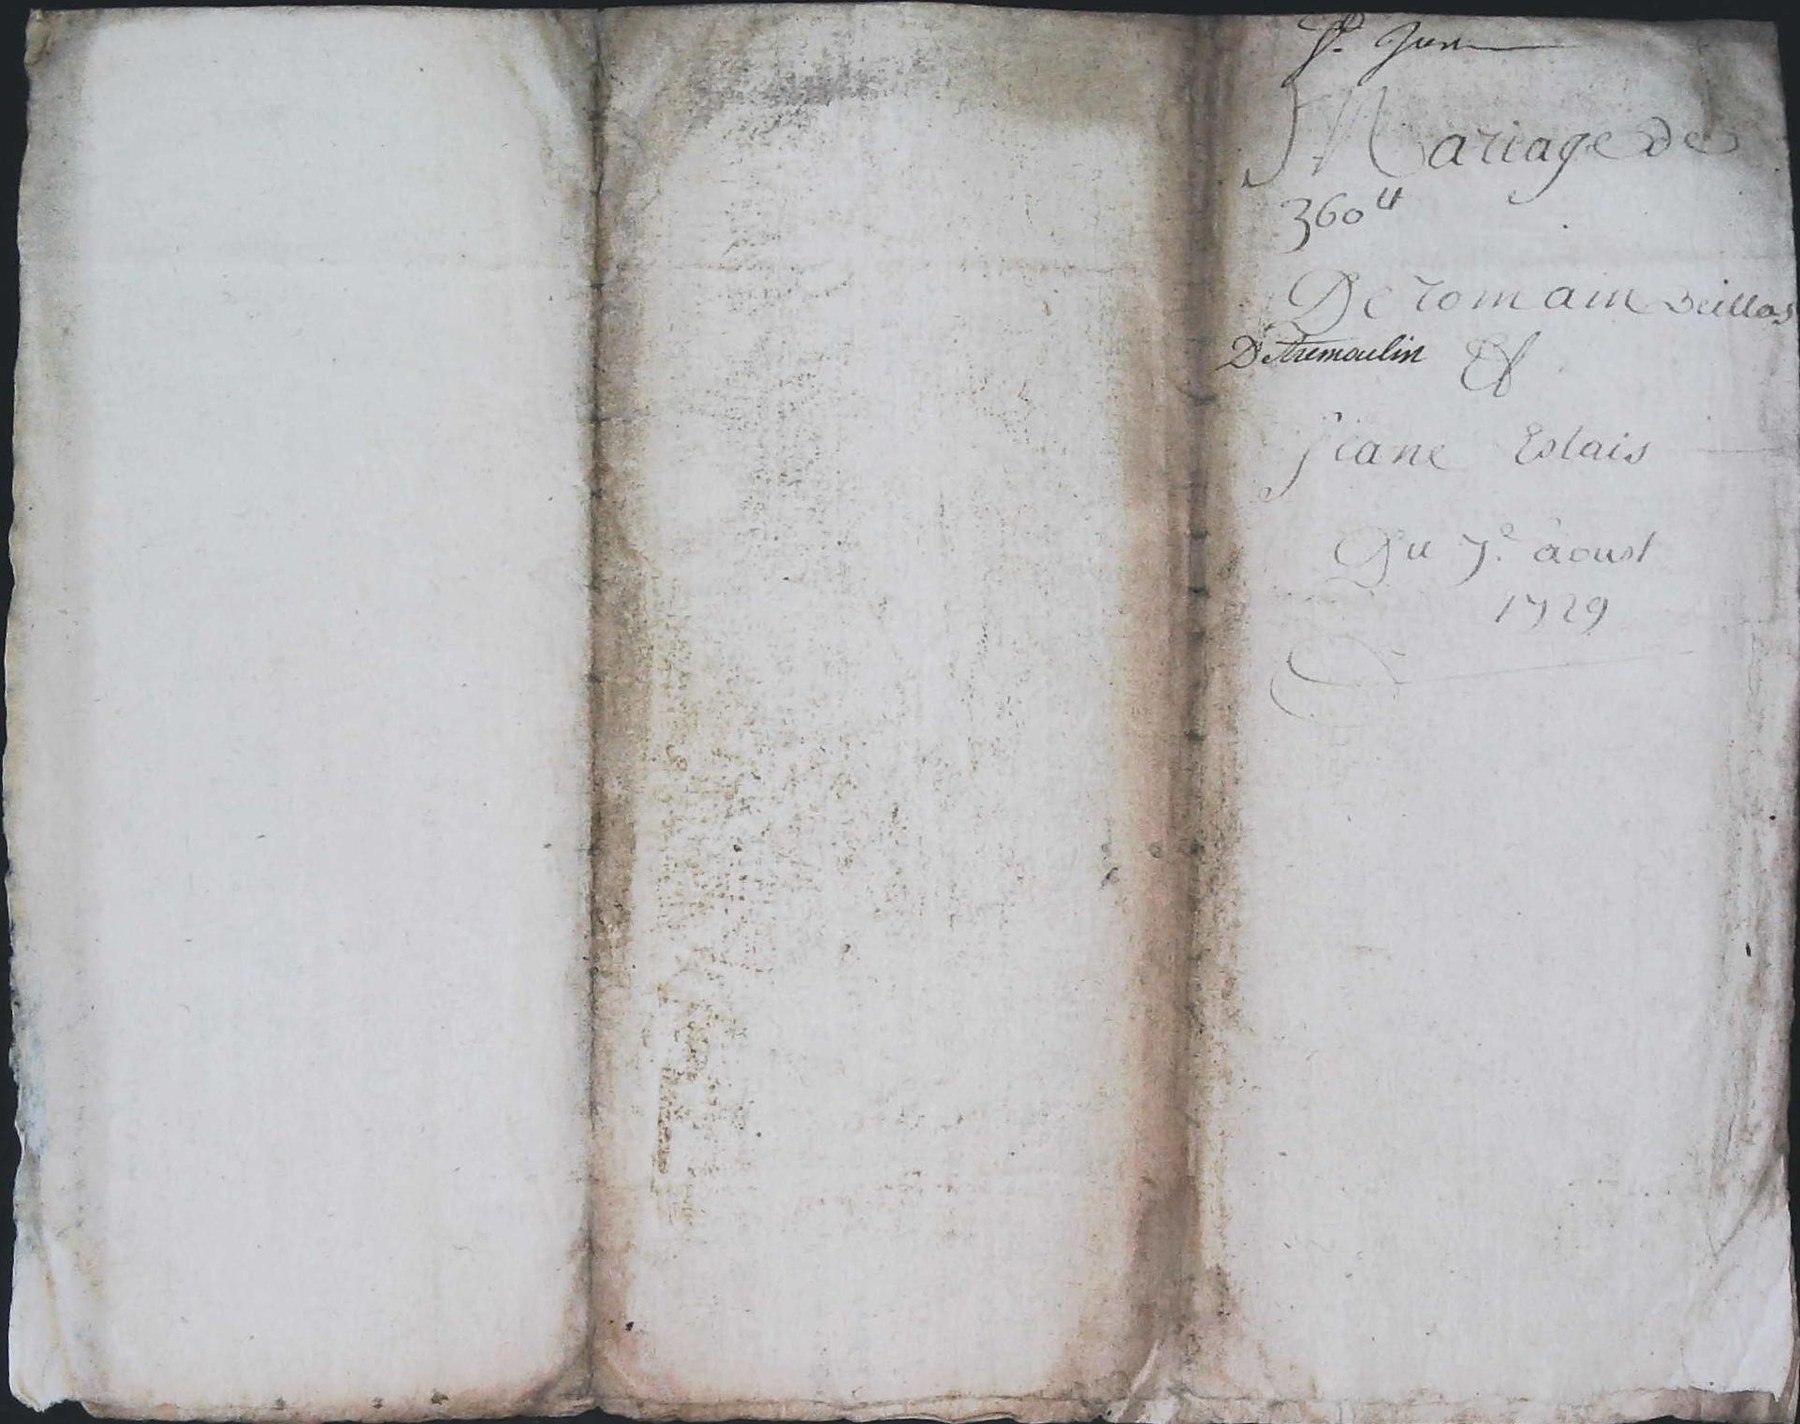 Mariage de
360 lt
De romain Deillas
De tremoulin &
jeane Estais
Du 7e. àoust
1729